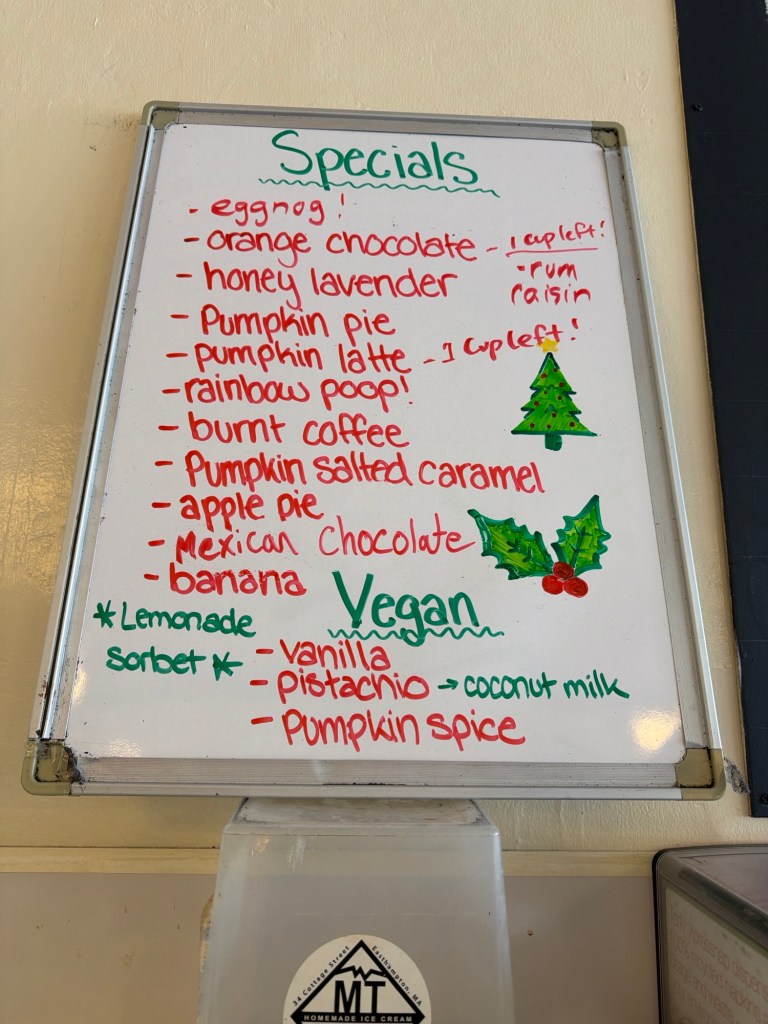 Specials
- eggnog!
- orange chocolate - 1 cup left!
- rum
raisin
- honey lavender
- Pumpkin pie
- pumpkin latte - 1 cup left!
- rainbow poop!
- burnt coffee
- Pumpkin salted caramel
- apple pie
- Mexican Chocolate
- banana
Vegan
*Lemonade
sorbet*
- vanilla
- pistachio → coconut milk
- Pumpkin spice
34 Cottage Street Easthampton, MA
MT
HOMEMADE ICE CREAM